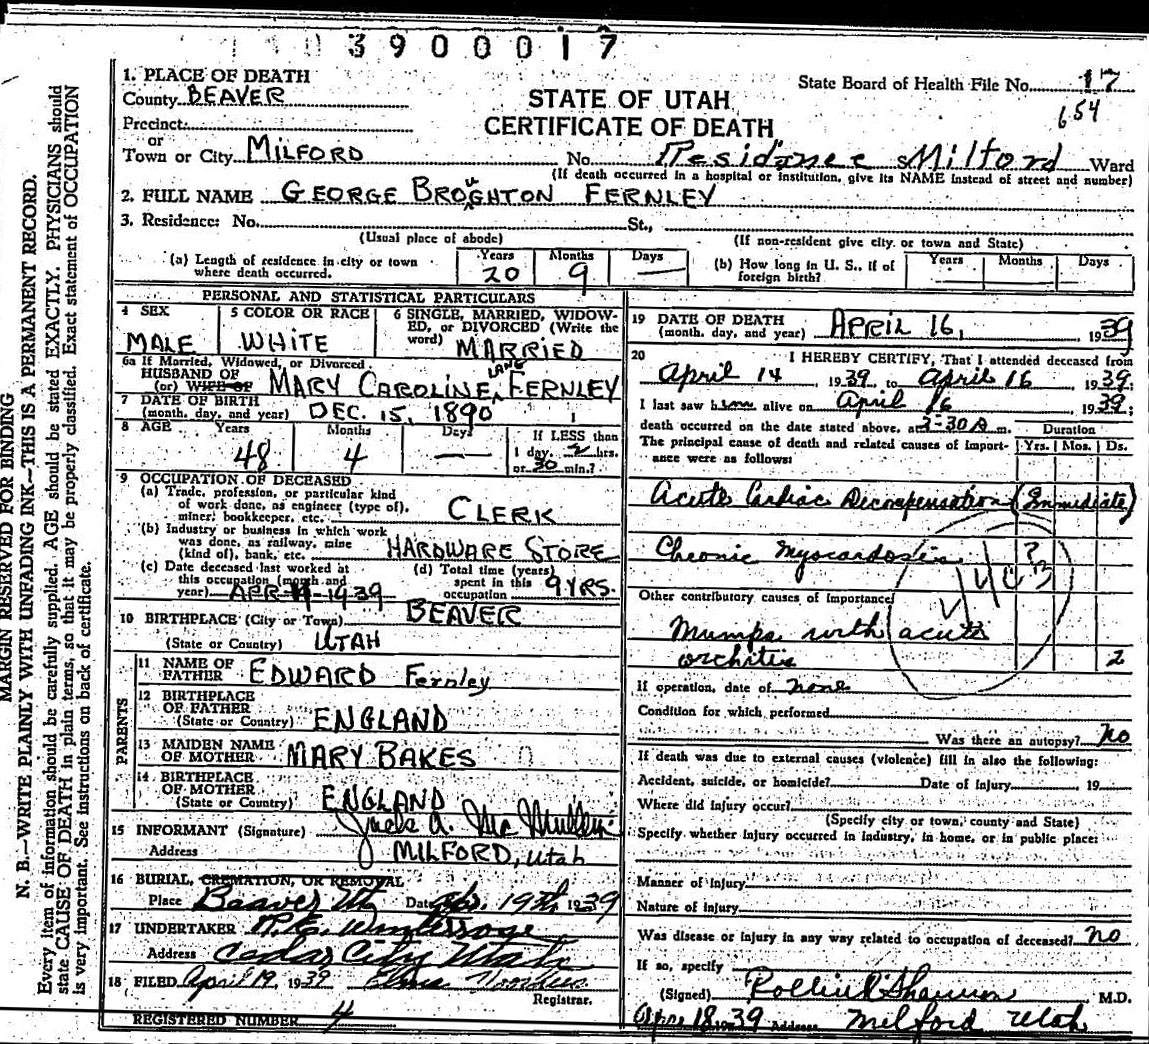 3900017
1. PLACE OF DEATH
County BEAVER
Precinct
or
Town or City MILFORD
STATE OF UTAH
CERTIFICATE OF DEATH
State Board of Health File No. 17
654
No. Residence St. Milford Ward
(If death occurred in a hospital or institution, give its NAME instead of street and number)
2. FULL NAME GEORGE BROUGHTON FERNLEY
3. Residence: No. St.,
(Usual place of abode) (If non-resident give city or town and State)
(a) Length of residence in city or town where death occurred. Years 20 Months 9 Days —
(b) How long in U. S., if of foreign birth? Years Months Days
PERSONAL AND STATISTICAL PARTICULARS
4 SEX MALE
5 COLOR OR RACE WHITE
6 SINGLE, MARRIED, WIDOWED, or DIVORCED (Write the word) MARRIED
6a If Married, Widowed, or Divorced
HUSBAND OF
(or) WIFE OF MARY CAROLINE LANE FERNLEY
7 DATE OF BIRTH
(month, day, and year) DEC. 15, 1890
8 AGE Years 48 Months 4 Days — If LESS than
1 day, 2 hrs.
or 30 min.?
9 OCCUPATION OF DECEASED
(a) Trade, profession, or particular kind
of work done, as engineer (type of),
miner, bookkeeper, etc. CLERK
(b) Industry or business in which work
was done, as railway, mine
(kind of), bank, etc. HARDWARE STORE
(c) Date deceased last worked at
this occupation (month and
year) APR 1939
(d) Total time (years)
spent in this
occupation 9 YRS.
10 BIRTHPLACE (City or Town) BEAVER
(State or Country) UTAH
PARENTS
11 NAME OF
FATHER EDWARD Fernley
12 BIRTHPLACE
OF FATHER
(State or Country) ENGLAND
13 MAIDEN NAME
OF MOTHER MARY BAKES
14 BIRTHPLACE
OF MOTHER
(State or Country) ENGLAND
15 INFORMANT (Signature) Jack A. McMullin
Address MILFORD, Utah
16 BURIAL, CREMATION, OR REMOVAL
Place Beaver Ut Date Apr. 19th 1939
17 UNDERTAKER
Address Cedar City Utah
18 FILED April 19, 1939
Registrar.
REGISTERED NUMBER 4
19 DATE OF DEATH
(month, day, and year) APRIL 16, 1939
20 I HEREBY CERTIFY, That I attended deceased from
April 14 1939, to April 16 1939;
I last saw him alive on April 16 1939;
death occurred on the date stated above, at 3-30 A m.
The principal cause of death and related causes of importance were as follows:
Duration
Yrs. Mos. Ds.
Acute Cardiac Decompensation (Immediate)
Chronic
Other contributory causes of importance:
Mumps with acute
orchitis 2
If operation, date of none
Condition for which performed
Was there an autopsy? no
If death was due to external causes (violence) fill in also the following:
Accident, suicide, or homicide? Date of injury 19
Where did injury occur?
(Specify city or town, county and State)
Specify whether injury occurred in industry, in home, or in public place:
Manner of injury
Nature of injury
Was disease or injury in any way related to occupation of deceased? no
If so, specify
(Signed) M.D.
Apr 18 1939 Address Milford Utah
MARGIN RESERVED FOR BINDING
N. B.—WRITE PLAINLY WITH UNFADING INK—THIS IS A PERMANENT RECORD.
Every item of information should be carefully supplied. AGE should be stated EXACTLY. PHYSICIANS should
state CAUSE OF DEATH in plain terms, so that it may be properly classified. Exact statement of OCCUPATION
is very important. See instructions on back of certificate.